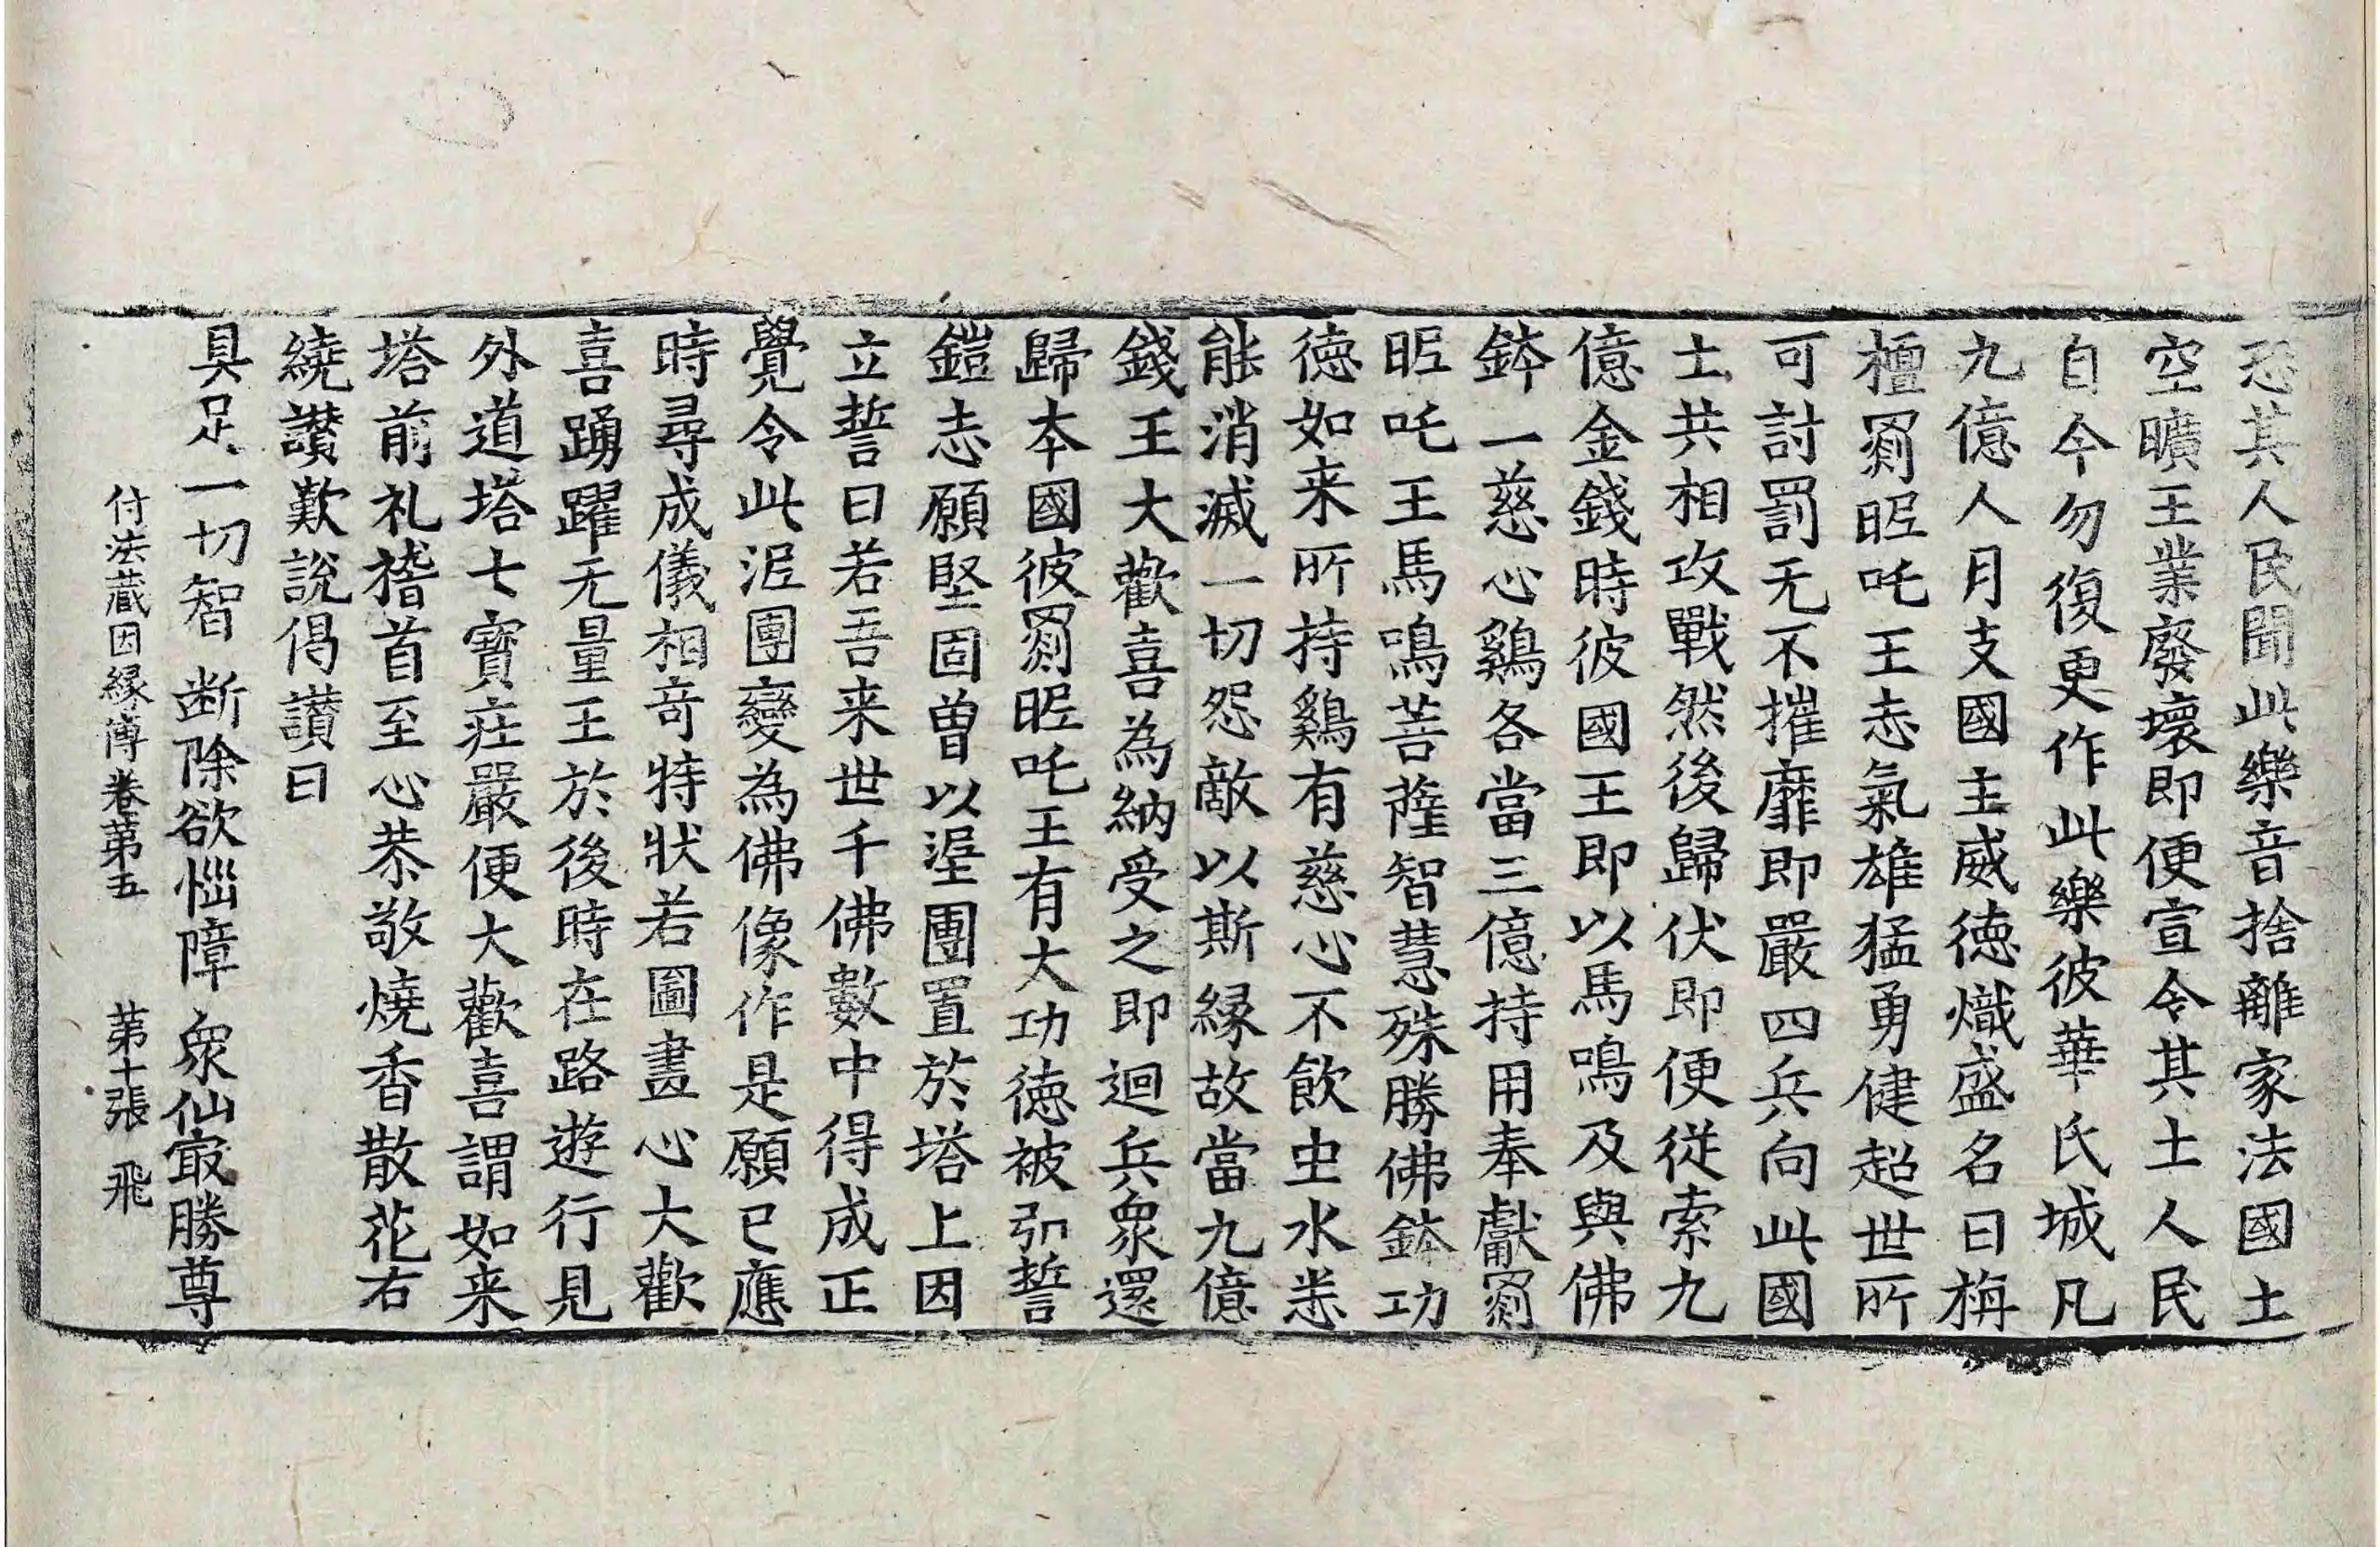 恐其人民聞此樂音捨離家法國土
空曠王業廢壞即便宣令其土人民
自今勿復更作此樂彼華氏城凡
九億人月支國主威德熾盛名曰栴
檀罽昵吒王志氣雄猛勇健超世所
可討罰无不摧靡即嚴四兵向此國
土共相攻戰然後歸伏即便從索九
億金錢時彼國王即以馬鳴及與佛
鉢一慈心鷄各當三億持用奉獻罽
昵吒王馬鳴菩薩智慧殊勝佛鉢功
德如来所持鷄有慈心不飲虫水悉
能消滅一切怨敵以斯縁故當九億
錢王大歡喜為納受之即迴兵衆還
歸本國彼罽昵吒王有大功德被弘誓
鎧志願堅固曾以埿團置於塔上因
立誓曰若吾来世千佛數中得成正
覺令此泥團變為佛像作是願已應
時尋成儀相竒特狀若圖畫心大歡
喜踊躍无量王於後時在路遊行見
外道塔七寶莊嚴便大歡喜謂如来
塔前礼稽首至心恭敬燒香散花右
繞讃歎說偈讃曰
具足一切智 断除欲惱障 衆仙㝡勝尊
付法蔵因縁傳卷第五 第十張 飛